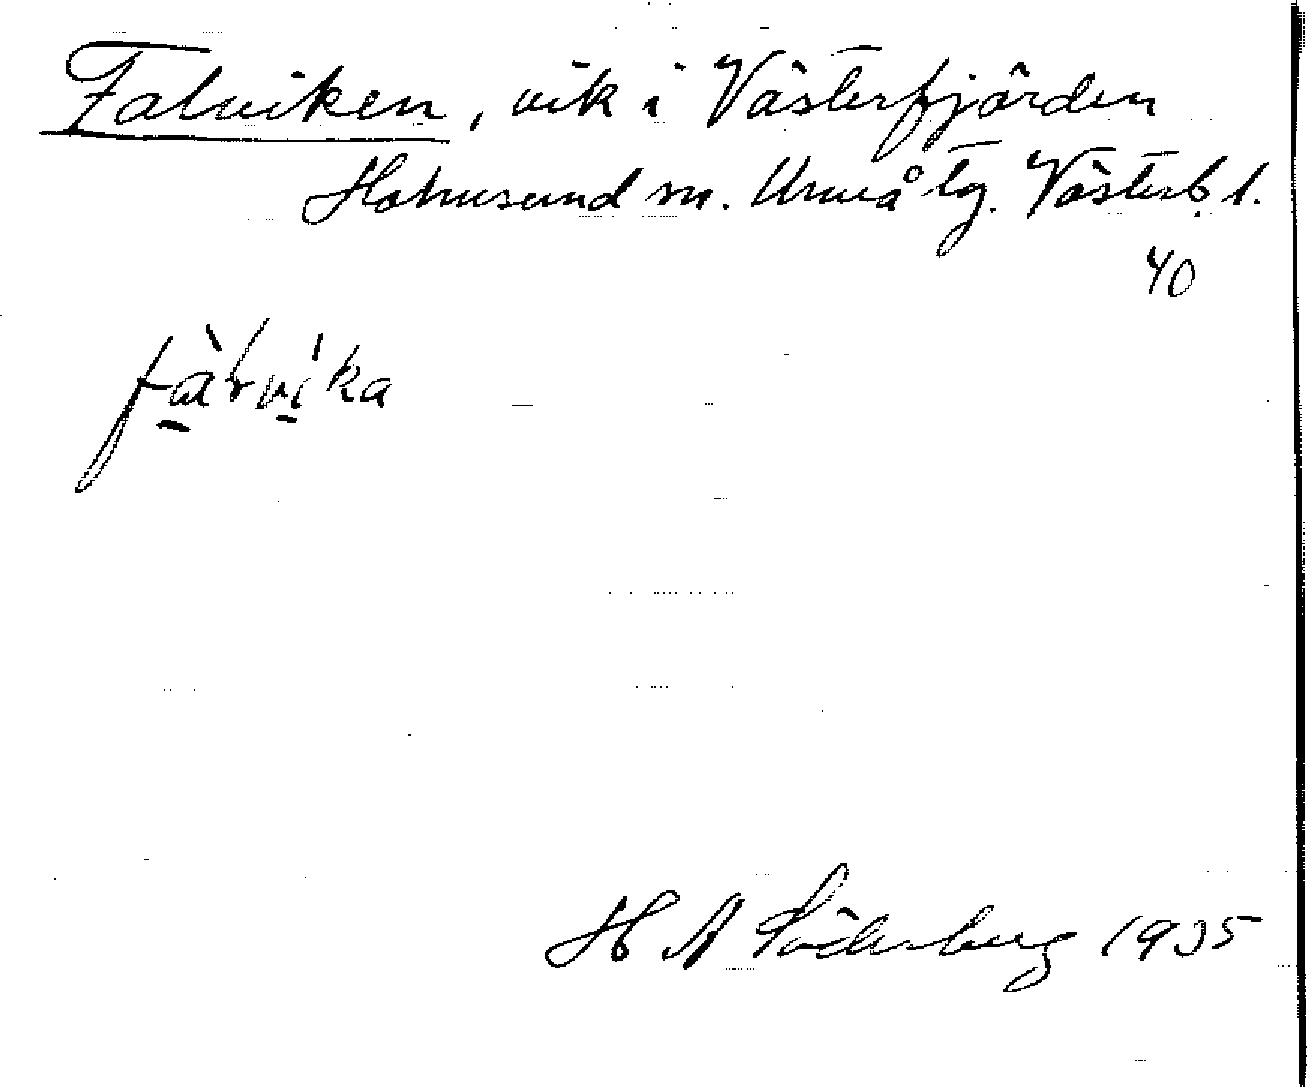 Falviken, vik i Västerfjärden
Holmsund sn. Umeå tg. Västerb. l.
40
H A Söderberg 1935